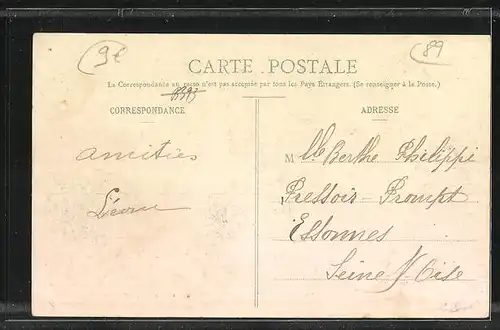 9€
89
CARTE POSTALE
La Correspondance au recto n'est pas acceptée par tous les Pays Étrangers. (Se renseigner à la Poste.)
CORRESPONDANCE
ADRESSE
amitiés
Léonie
M lle Berthe Philippe
Pressoir-Prompt
Essonnes
Seine & Oise